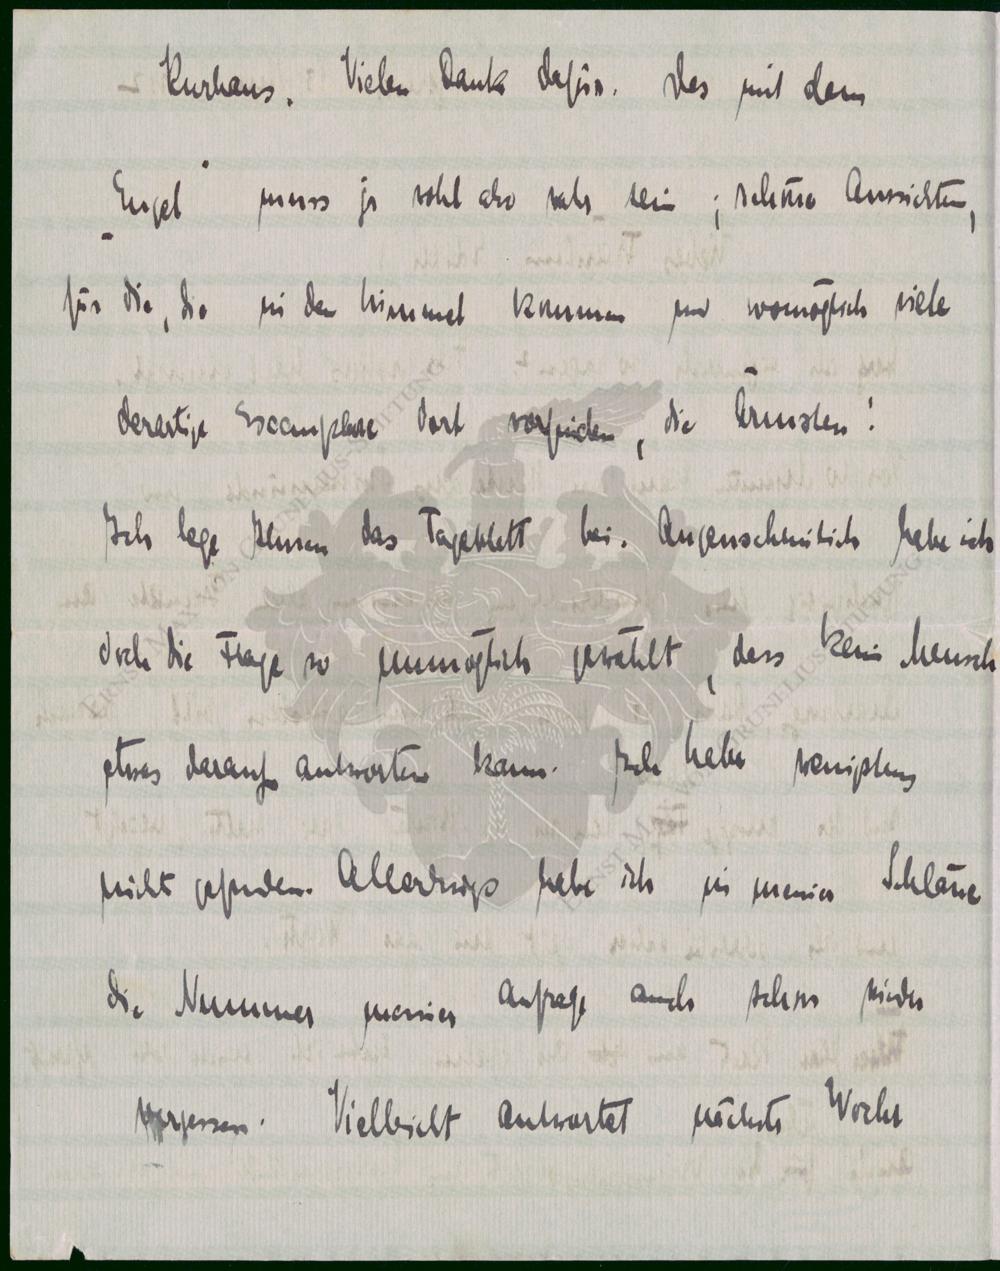 Kurhaus. Vielen Dank dafür. Das mit dem
„Engel" muss ja wohl also wahr sein; schöne Aussichten,
für die, die in den Himmel kommen und womöglich viele
derartige Exemplare dort vorfinden, die Ärmsten!
Ich lege Ihnen das Tageblatt bei. Augenscheinlich habe ich
doch die Frage so unmöglich gewählt, dass kein Mensch
etwas darauf antworten kann. Ich habe wenigstens
nicht gefunden. Allerdings habe ich in meiner Schläue
die Nummer meiner Anfrage auch schon wieder
vergessen. Vielleicht antwortet nächste Woche
ERNST MAX VON GRUNELIUS-STIFTUNG
ERNST MAX VON GRUNELIUS-STIFTUNG